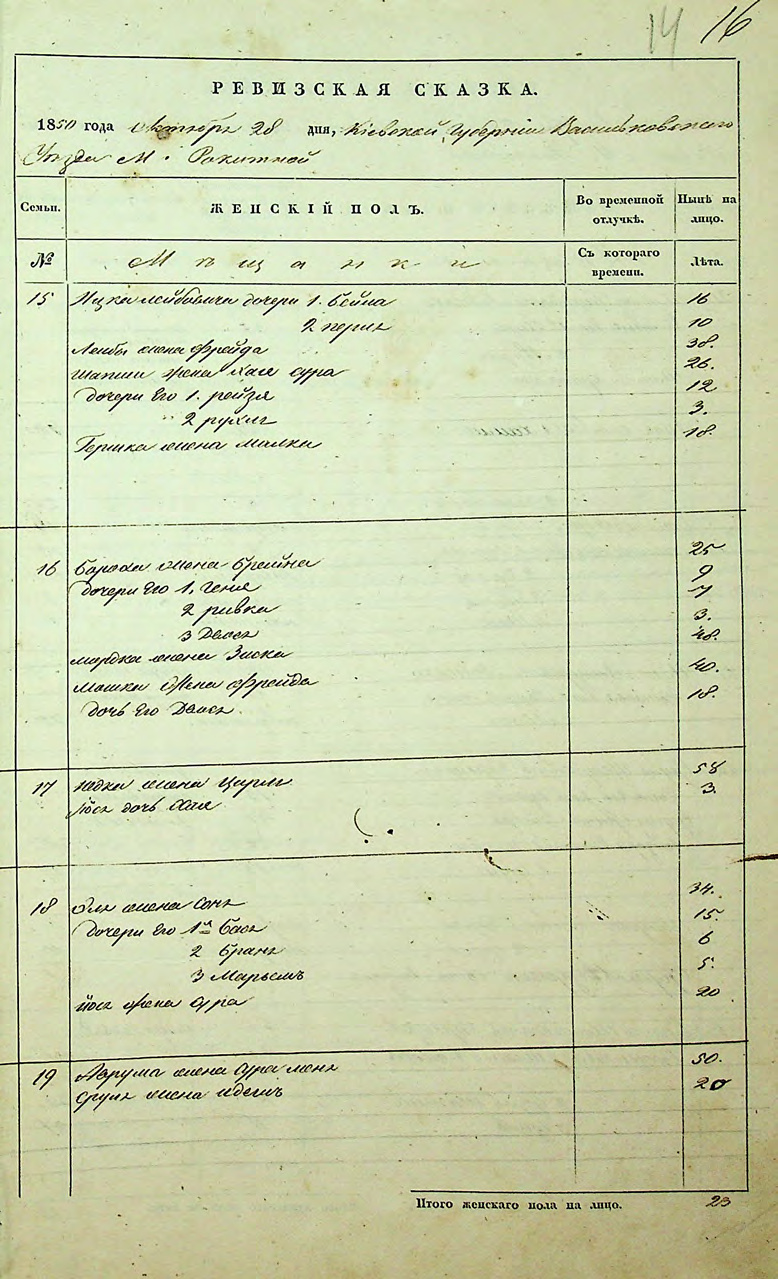 14 16
РЕВИЗСКАЯ СКАЗКА.
1850 года Октября 28 дня, Кіевской Губерніи Васильковскаго
Уѣзда М. Рокитной
Семьи. ЖЕНСКІЙ ПОЛЪ. Во временной отлучкѣ. Нынѣ на лицо.
№ Мѣщанки Съ котораго времени. Лѣта.
15 Ицка Лейбовича дочери 1. Бейла 16
2 перля 10
Лейбы жена Фрейда 38.
жена Хая сура 26.
дочери Его 1. рейзя 12
2 рухля 3.
Гершка жена Малка 18.
16 Бороха жена Брейна 25
дочери Его 1. Геня 9
2 ривка 7
3 Двося 3.
мордка жена Зиска 48.
Мошка Жена Фрейда 40.
дочь Его Двося 18.
17 жена Царля 58
Йося дочь Хая 3.
18 Эля жена Соня 34.
дочери Его 1я Бася 15.
2 Браня 6
3 Марьемъ 5.
йося жена сура 20
19 Аврума жена сура 50.
сруля жена идесъ 20
Итого женскаго пола на лицо. 23